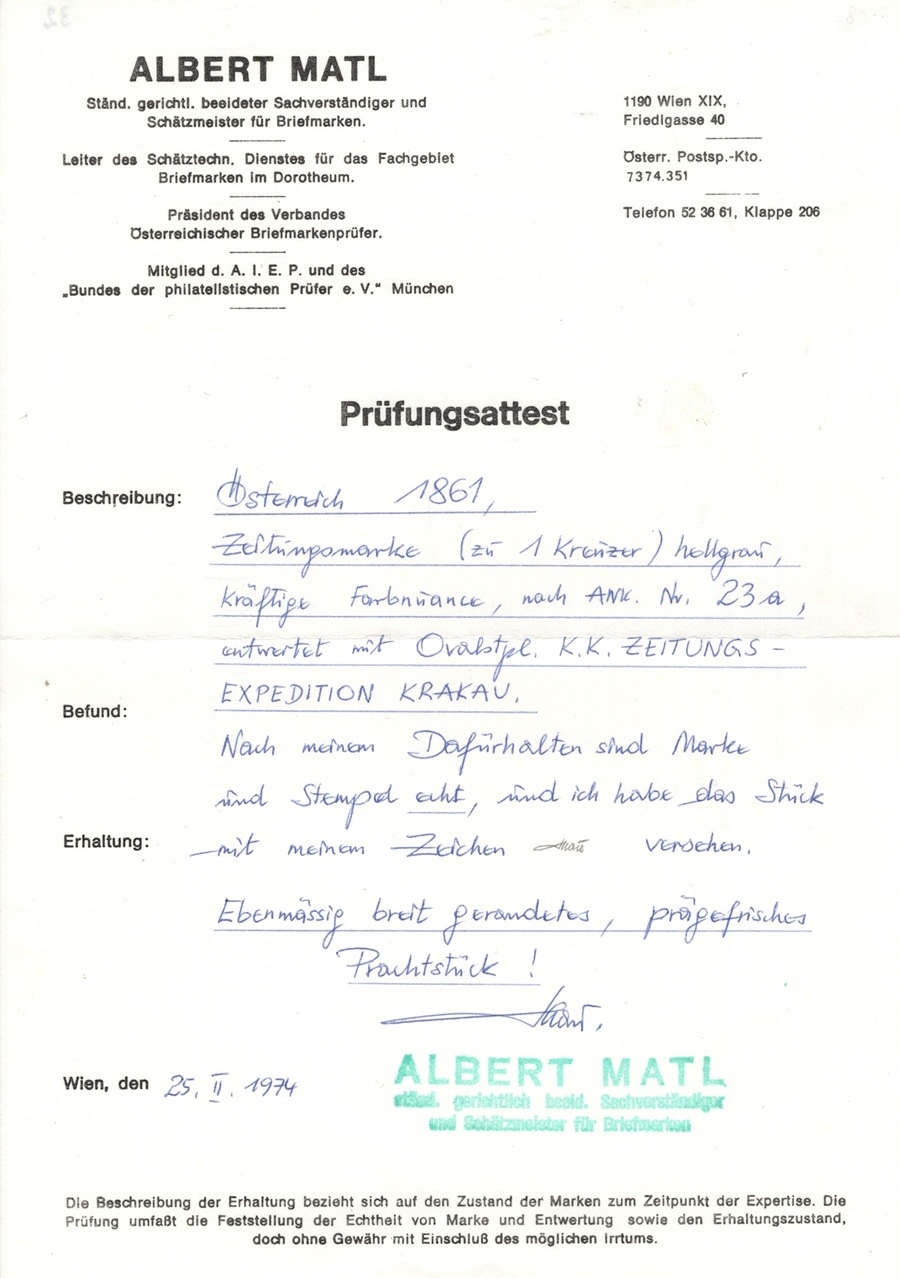 ALBERT MATL
Ständ. gerichtl. beeideter Sachverständiger und
Schätzmeister für Briefmarken.
Leiter des Schätztechn. Dienstes für das Fachgebiet
Briefmarken im Dorotheum.
Präsident des Verbandes
Österreichischer Briefmarkenprüfer.
Mitglied d. A. I. E. P. und des
„Bundes der philatelistischen Prüfer e. V.“ München
1190 Wien XIX,
Friedlgasse 40
Österr. Postsp.-Kto.
7374.351
Telefon 52 36 61, Klappe 206
Prüfungsattest
Beschreibung: Österreich 1861,
Zeitungsmarke (zu 1 Kreuzer) hellgrau,
kräftige Farbnuance, nach ANK. Nr. 23a,
entwertet mit Ovalstpl. K.K. ZEITUNGS-
EXPEDITION KRAKAU.
Befund:
Nach meinem Dafürhalten sind Marke
und Stempel echt, und ich habe das Stück
Erhaltung: mit meinem Zeichen Matl versehen.
Ebenmässig breit gerandetes, prägefrisches
Prachtstück !
Matl.
Wien, den 25. II. 1974
ALBERT MATL
ständ. gerichtlich beeid. Sachverständiger
und Schätzmeister für Briefmarken
Die Beschreibung der Erhaltung bezieht sich auf den Zustand der Marken zum Zeitpunkt der Expertise. Die
Prüfung umfaßt die Feststellung der Echtheit von Marke und Entwertung sowie den Erhaltungszustand,
doch ohne Gewähr mit Einschluß des möglichen Irrtums.